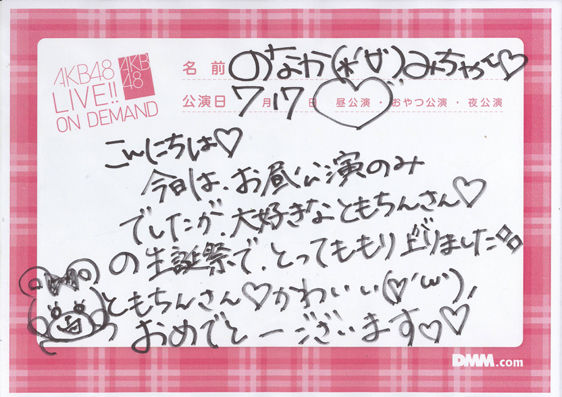 AKB48
LIVE!!
ON DEMAND
AKB
48
名前 のなか(*´∀`)みちゃ〜♡
公演日 7月17日 昼公演・おやつ公演・夜公演
こんにちは♡
今日は、お昼公演のみ
でしたが、大好きなともちんさん♡
の生誕祭で、とってももり上りました
ともちんさん♡かわいい(♡´ω`)
おめでとーございます♡♡
DMM.com